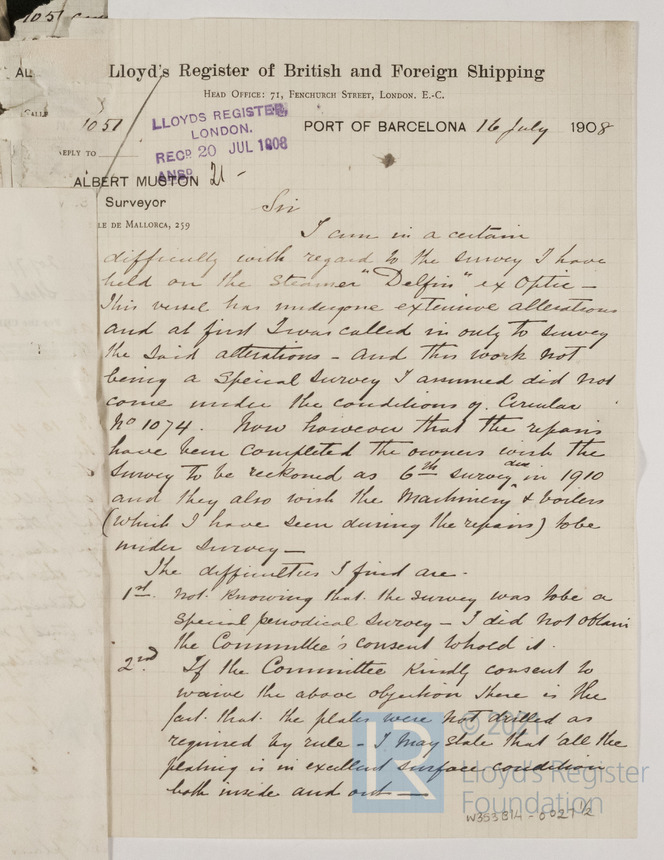 1051
Lloyd's Register of British and Foreign Shipping
HEAD OFFICE: 71, FENCHURCH STREET, LONDON. E.-C.
1051
LLOYDS REGISTER
LONDON.
RECD 20 JUL 1908
ANSD
PORT OF BARCELONA 16 July 1908
EPLY TO
ALBERT MUSTON 21-
Surveyor
LE DE MALLORCA, 259
Sir
I am in a certain
difficulty with regard to the survey I have
held on the Steamer "Delfin" ex Optic -
This vessel has undergone extensive alterations
and at first I was called in only to survey
the said alterations - and this work not
being a Special Survey I assumed did not
come under the conditions of Circular
No 1074. Now however that the repairs
have been completed the owners wish the
survey to be reckoned as 6th survey due in 1910
and they also wish the Machinery & boilers
(which I have seen during the repairs) to be
under survey -
The difficulties I find are.
1st. Not knowing that the survey was to be a
special periodical survey - I did not obtain
the Committee's consent to hold it.
2nd If the Committee kindly consent to
waive the above objection there is the
fact that the plates were not drilled as
required by rule - I may state that all the
plating is in excellent surface condition
both inside and out -
© 2021
LR
Lloyd's Register
Foundation
W353814-0027 1/2